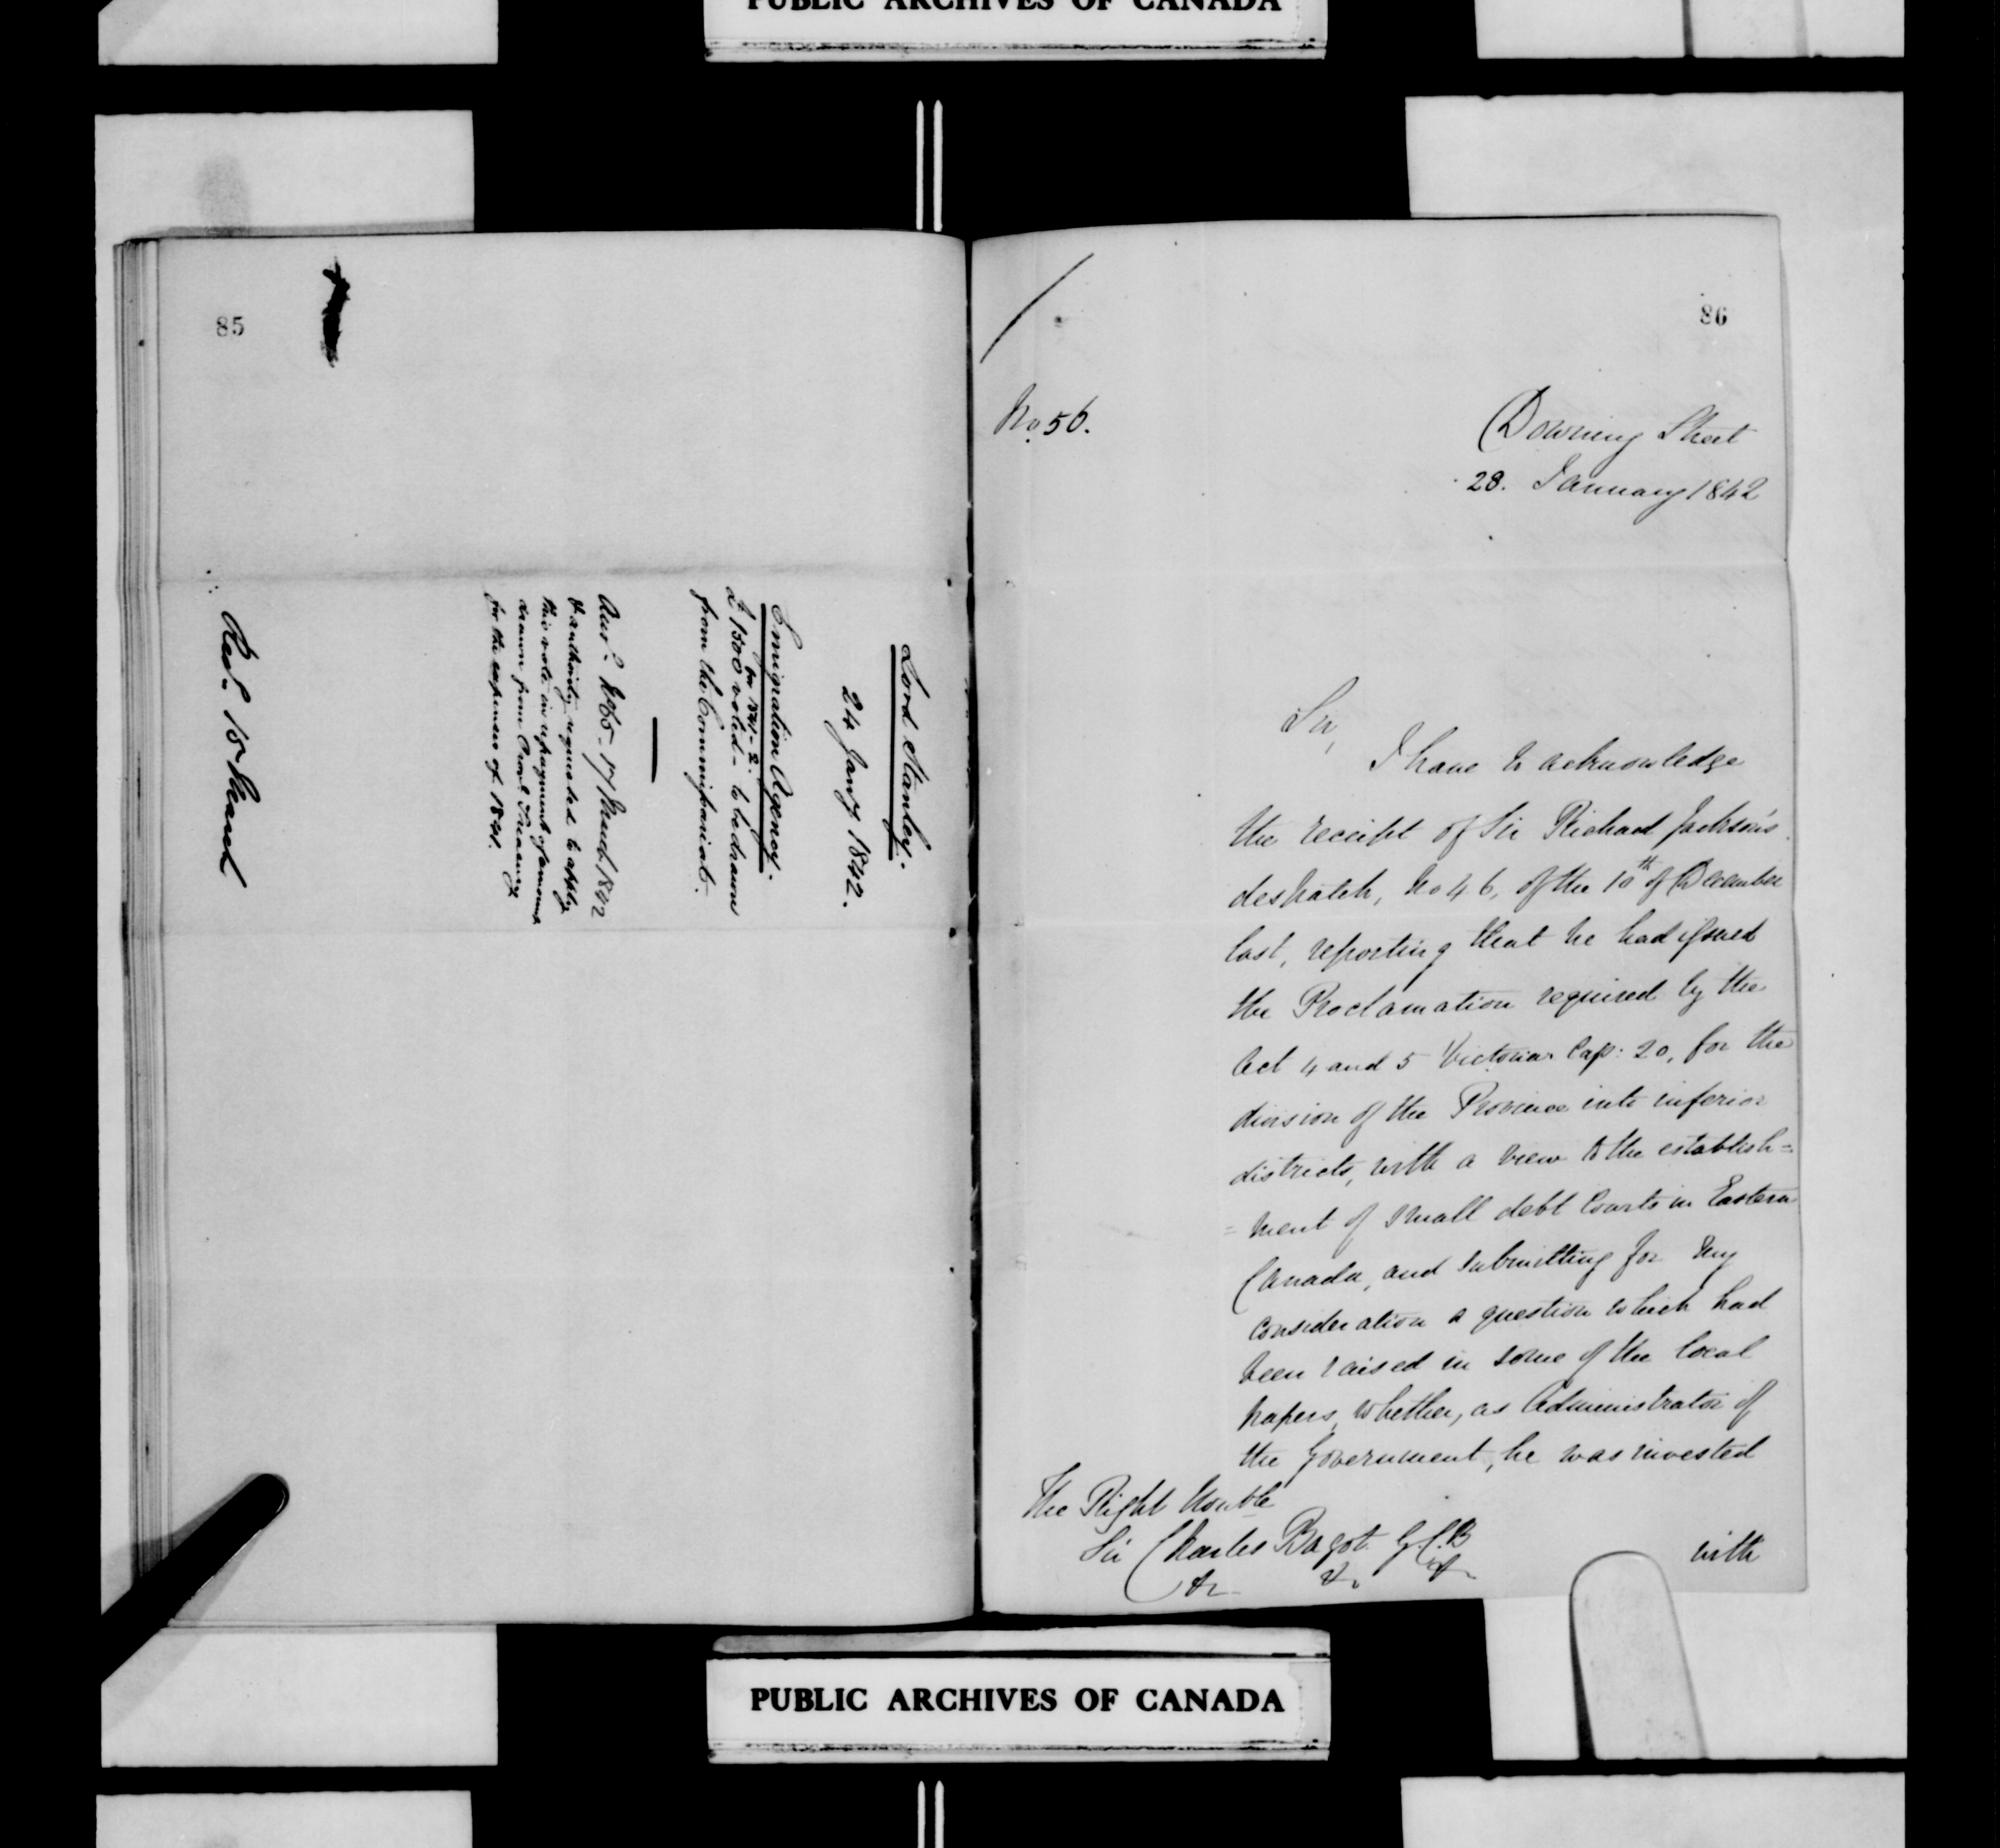 PUBLIC ARCHIVES OF CANADA
85
Lord Stanley.
24 Jany 1842.
Emigration Agency.
for 1841-2.
£1500 voted - to be drawn
from the Commissariat.
Ansd. No 65 - 17 March 1842
& authority requested to apply
this vote in repayment of amount
drawn from Provl Treasury
for the expenses of 1841.
Recd. 15 March
86
No. 56.
Downing Street
28. January 1842
Sir,
I have to acknowledge
the receipt of Sir Richard Jackson's
despatch, No 46, of the 10th of December
last, reporting that he had issued
the Proclamation required by the
Act 4 and 5 Victoria Cap: 20, for the
division of the Province into inferior
districts, with a view to the establish=
=ment of small debt Courts in Eastern
Canada, and submitting for my
consideration a question which had
been raised in some of the local
papers, whether, as Administrator of
the Government, he was invested
The Right Honble
Sir Charles Bagot G.C.B
&c &c &c
with
PUBLIC ARCHIVES OF CANADA